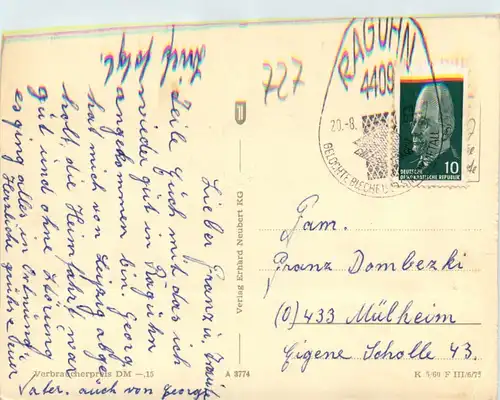 Lieber Franz u. Traute
Teile Euch mit das ich
wieder gut in Raguhn
angekommen bin. Georg
hat mich von Leipzig abge
holt, die Heimfahrt war
gut und ohne Störung
es ging alles in Ordnung
Herzliche grüße Euer
Vater. auch von George
Brief folgt
727
RAGUHN
4409
20.-8.
GELOCHTE BLECHE
DEUTSCHE
DEMOKRATISCHE REPUBLIK
10
Verlag Erhard Neubert KG
Fam.
Franz Dombezki
(0)433 Mülheim
Eigene Scholle 43.
Verbraucherpreis DM —,15
A 3774